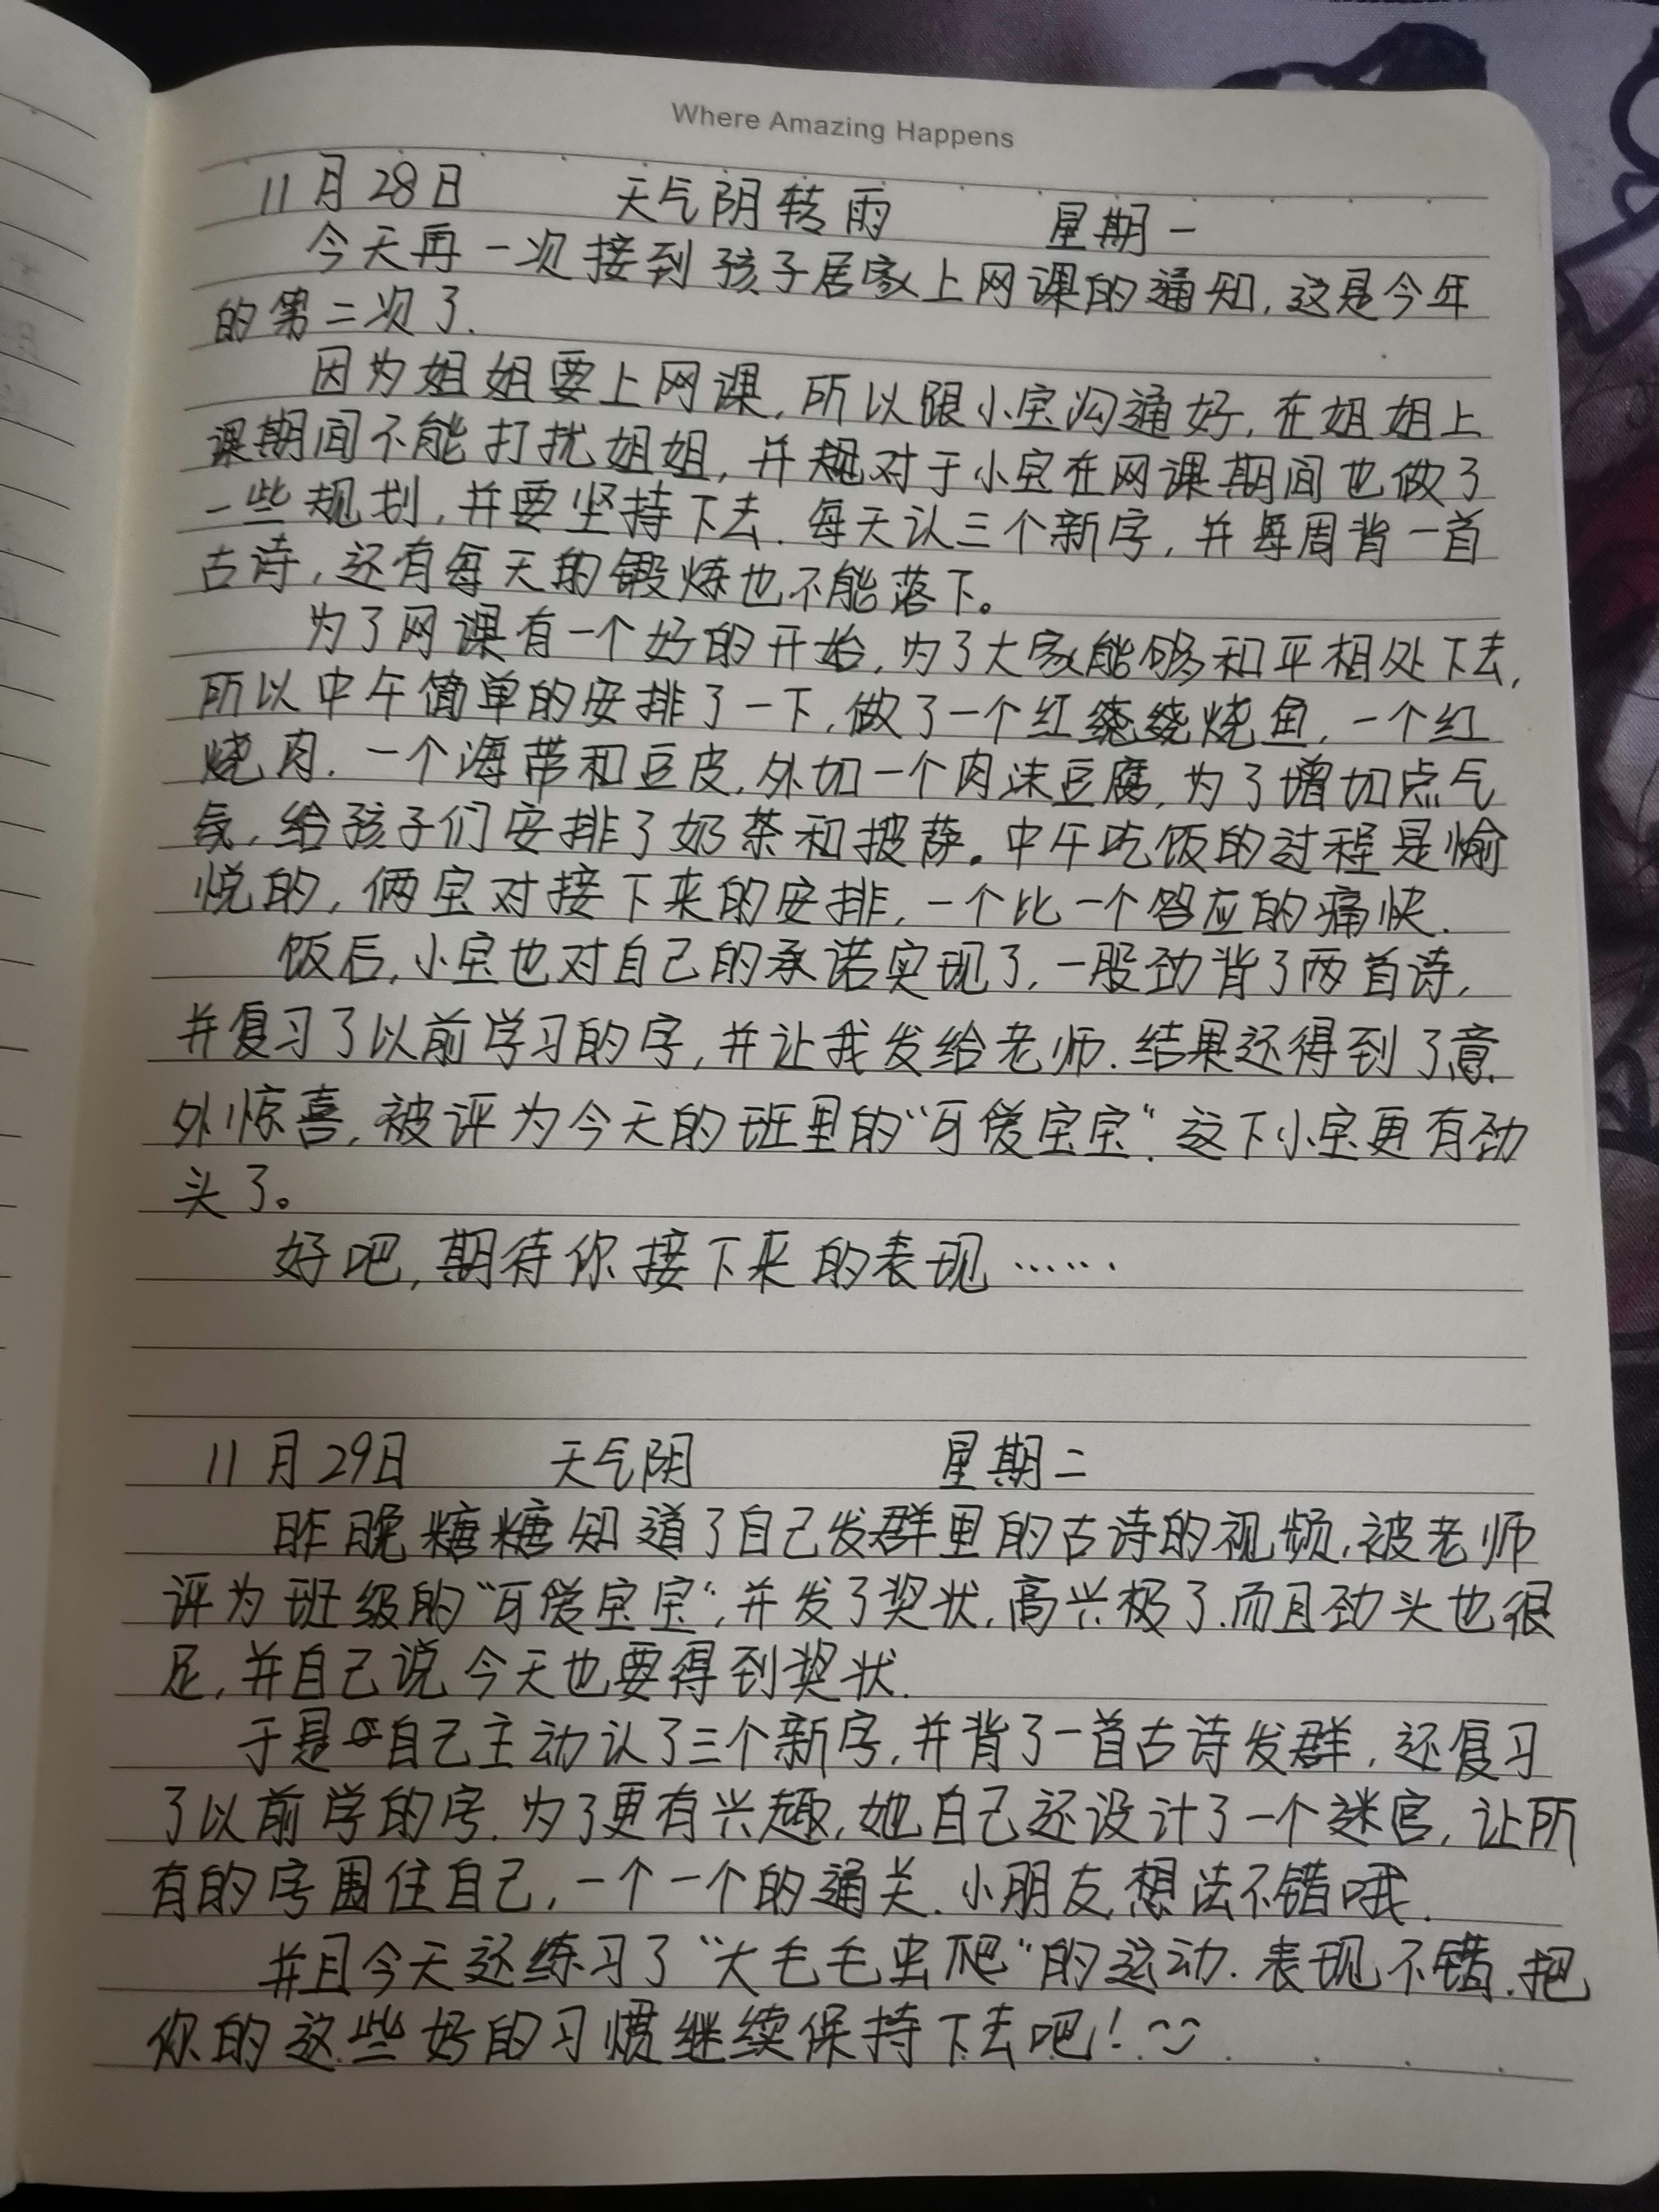 Where Amazing Happens
11月28日 天气阴转雨 星期一
今天再一次接到孩子居家上网课的通知,这是今年
的第二次了.
因为姐姐要上网课,所以跟小宝沟通好,在姐姐上
课期间不能打扰姐姐,并规对于小宝在网课期间也做了
一些规划,并要坚持下去.每天认三个新字,并每周背一首
古诗,还有每天的锻炼也不能落下。
为了网课有一个好的开始,为了大家能够和平相处下去,
所以中午简单的安排了一下,做了一个红烧鱼,一个红
烧肉.一个海带和豆皮,外加一个肉沫豆腐,为了增加点气
氛,给孩子们安排了奶茶和披萨。中午吃饭的过程是愉
悦的,俩宝对接下来的安排,一个比一个答应的痛快.
饭后,小宝也对自己的承诺实现了,一股劲背了两首诗,
并复习了以前学习的字,并让我发给老师.结果还得到了意
外惊喜,被评为今天的班里的“可爱宝宝”.这下小宝更有劲
头了。
好吧,期待你接下来的表现……
11月29日 天气阴 星期二
昨晚糖糖知道了自己发群里的古诗的视频,被老师
评为班级的“可爱宝宝”,并发了奖状,高兴极了.而且劲头也很
足,并自己说今天也要得到奖状.
于是自己主动认了三个新字,并背了一首古诗发群,还复习
了以前学的字.为了更有兴趣,她自己还设计了一个迷宫,让所
有的字围住自己,一个一个的通关.小朋友,想法不错哦.
并且今天还练习了“大毛毛虫爬”的运动.表现不错.把
你的这些好的习惯继续保持下去吧!